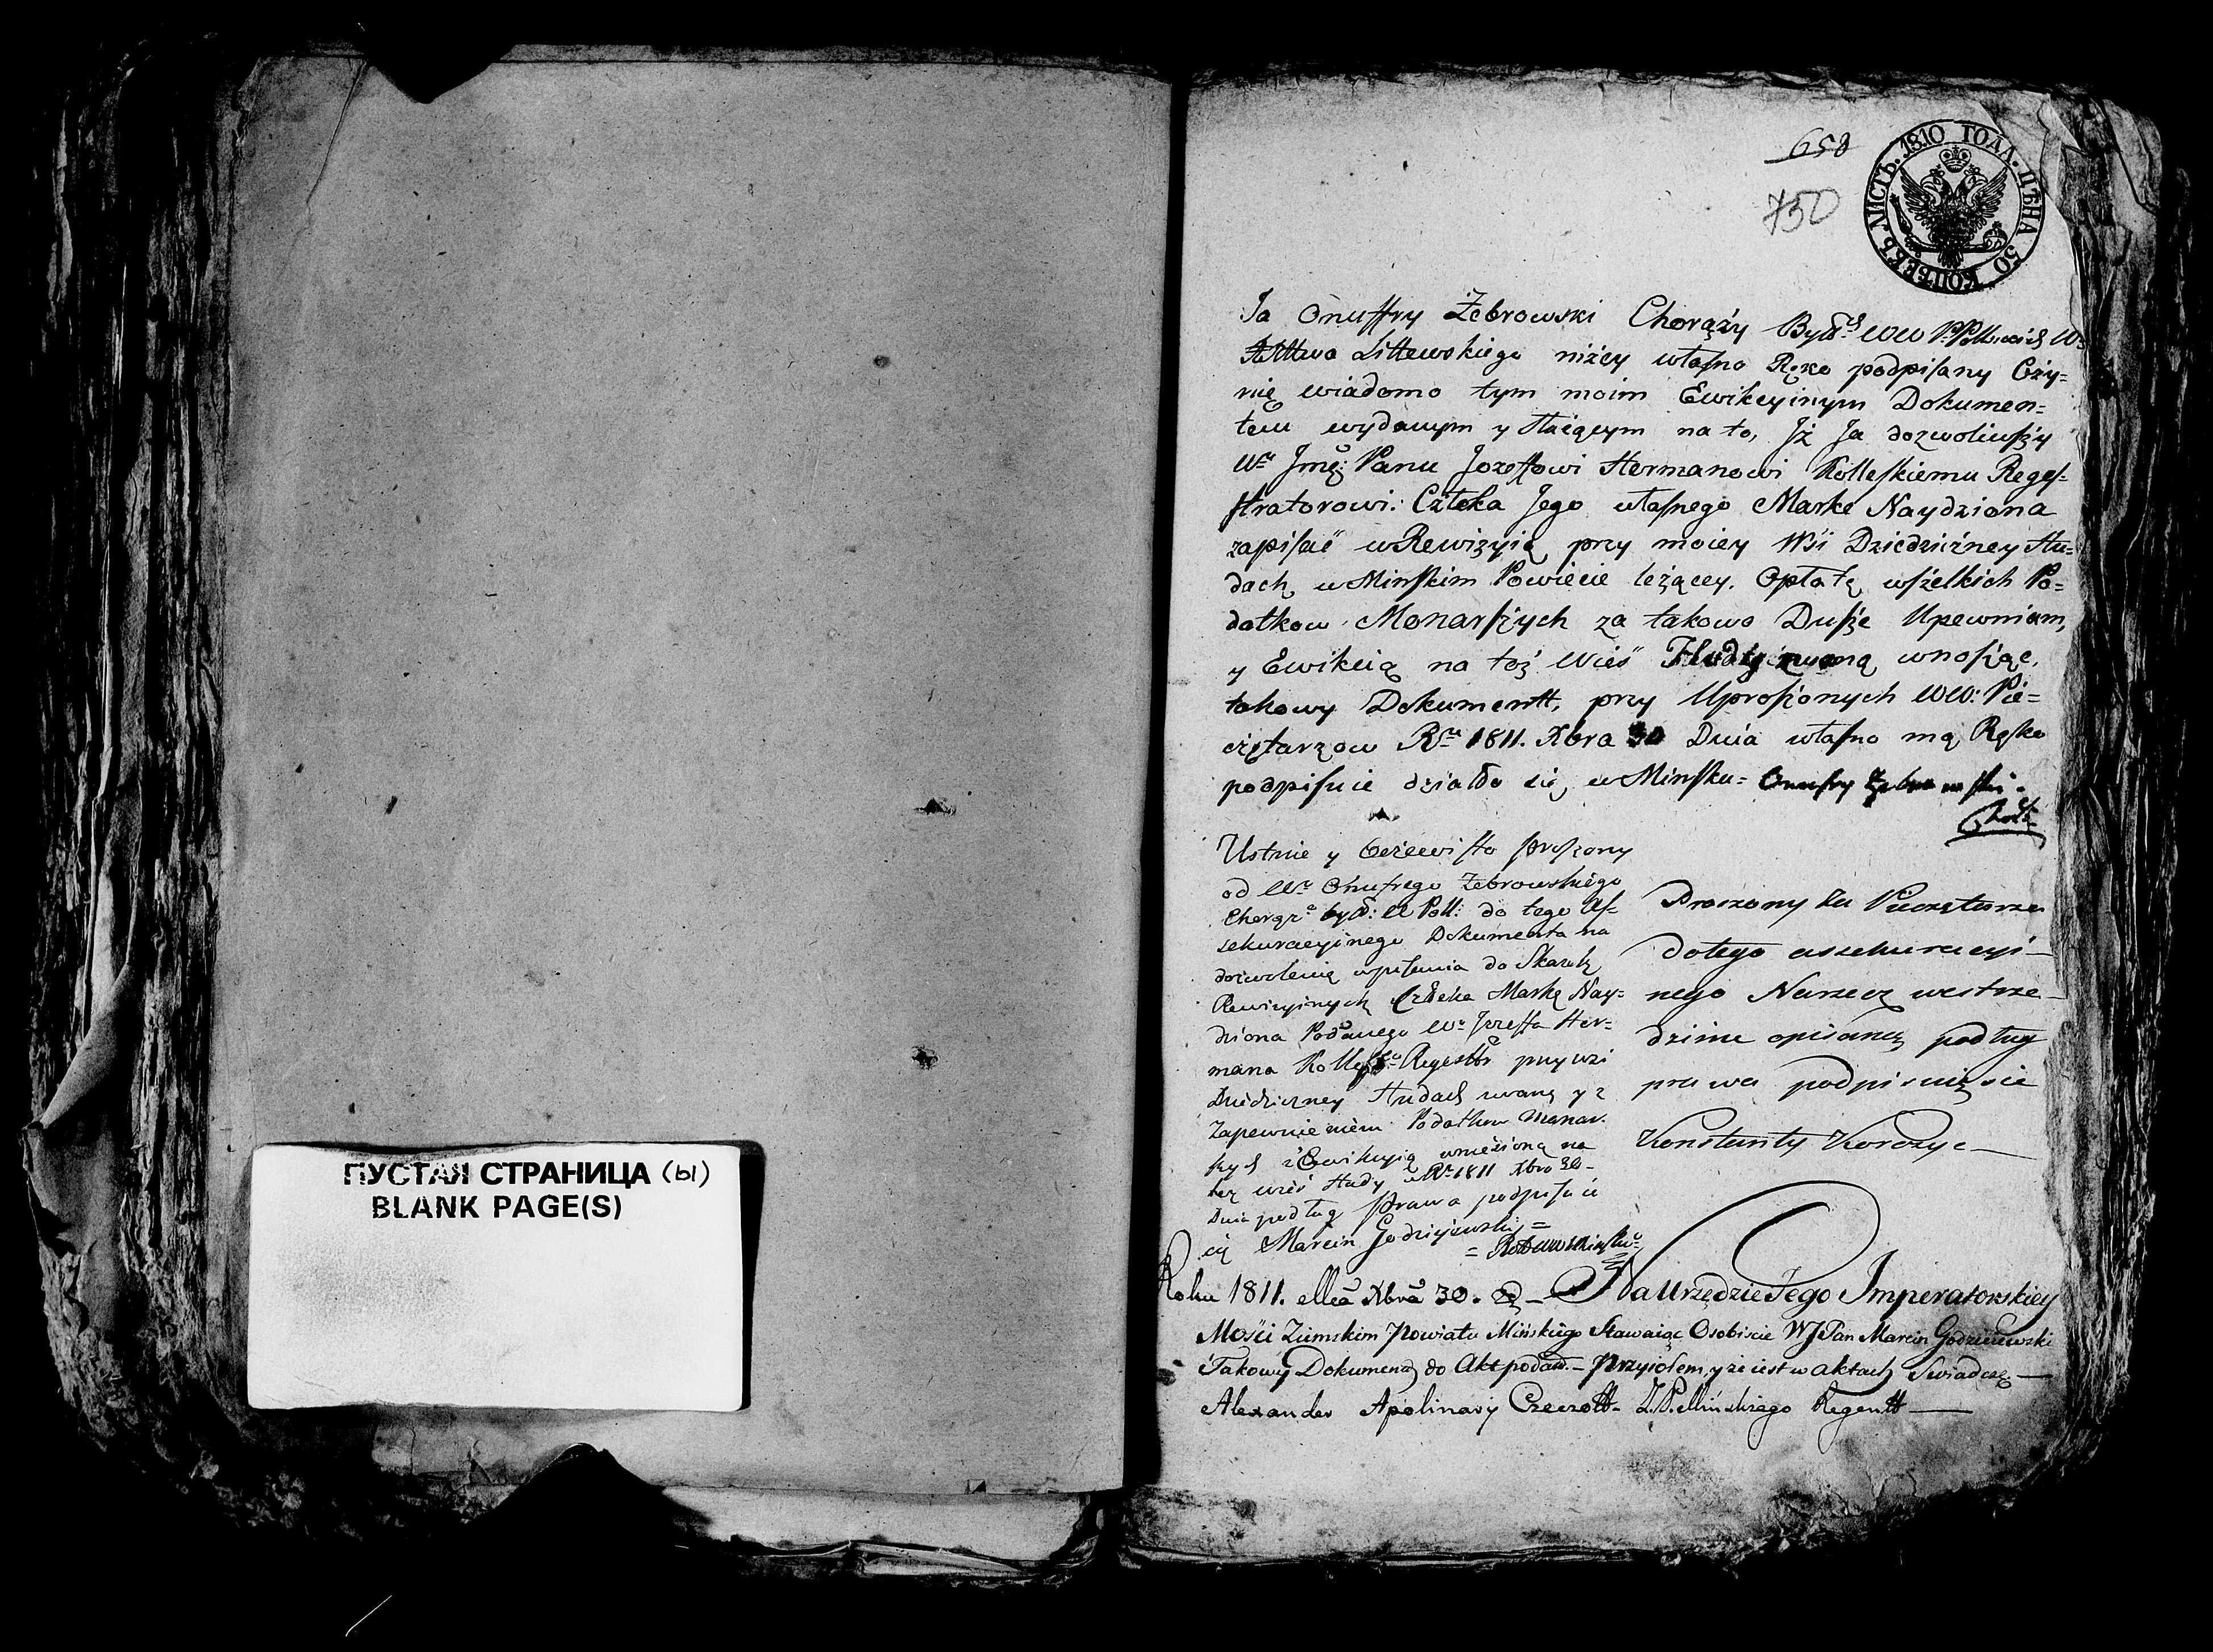 ПУСТАЯ СТРАНИЦА (ы)
BLANK PAGE(S)
658
750
ЛИСТЪ. 1810 ГОДА. ЦѢНА 50 КОПѢЕКЪ.
Ja Onuffry Żebrowski Chorąży
Littewskiego niżey własno Ręko podpisany Czy=
nię wiadomo tym moim Ewikcyinym Dokumen=
tem wydanym y na to, Jż Ja dozwoliwszy
Wu Jmę: Panu Jozeffowi Hermanowi Kolleskiemu Reges=
stratorowi: Człeka Jego własnego Marke Naydziona
zapisać w Rewizyią przy moiey Wśi Dziedziczney Hu=
dach w Minskim Powiecie leżącey. Opłatę wszelkich Po=
datkow Monarszych za takowo Dusze Upewniam,
y Ewikcią na toż Wieś wnosząc,
takowy Dokumentt, przy Uproszonych WW: Pie=
częтarzow Ru 1811. Xbra 30 Dnia własno mą Ręko
podpisuie działo się w Minsku = Onufry Żebrowski
Ustnie y oczewisto proszony
od Wo Onufrego Żebrowskiego
do tego As=
sekuracyjnego Dokumenta na
dozwolenią wpisania do Skazek
Rewizyjnych Człeka Markę Nay=
dziona Podanego Wo Jozeffa Her=
mana przy wsi
Dziedziczney Hudach zwaną y z
Zapewnieniem Podatkow Monar.
szych z Ewikcyią wnieśioną na
tęż wieś Hudy Ru 1811 Xbra 30
Dnia podług Prawa podpisał
się Marcin Godziejewski =
Proszony za Pieczętarza
do tego assekuracyi=
nego Narzecz wewstrze=
dzinie opisaną podług
prawa podpisuię sie
Konstanty Korczyc
Roku 1811. Mca Xbra 30. Na Urzędzie Jego Imperatorskiey
Mości Ziemskim Powiatu Mińskiego Stawaiąc Osobiscie WJ Pan Marcin Godziejewski
Takowy Dokument do Akt podał. — Przyiołem, y że iest w aktach Swiadczę —
Alexander Apolinary Czeczott Z. P. Mińskiego Regentt —